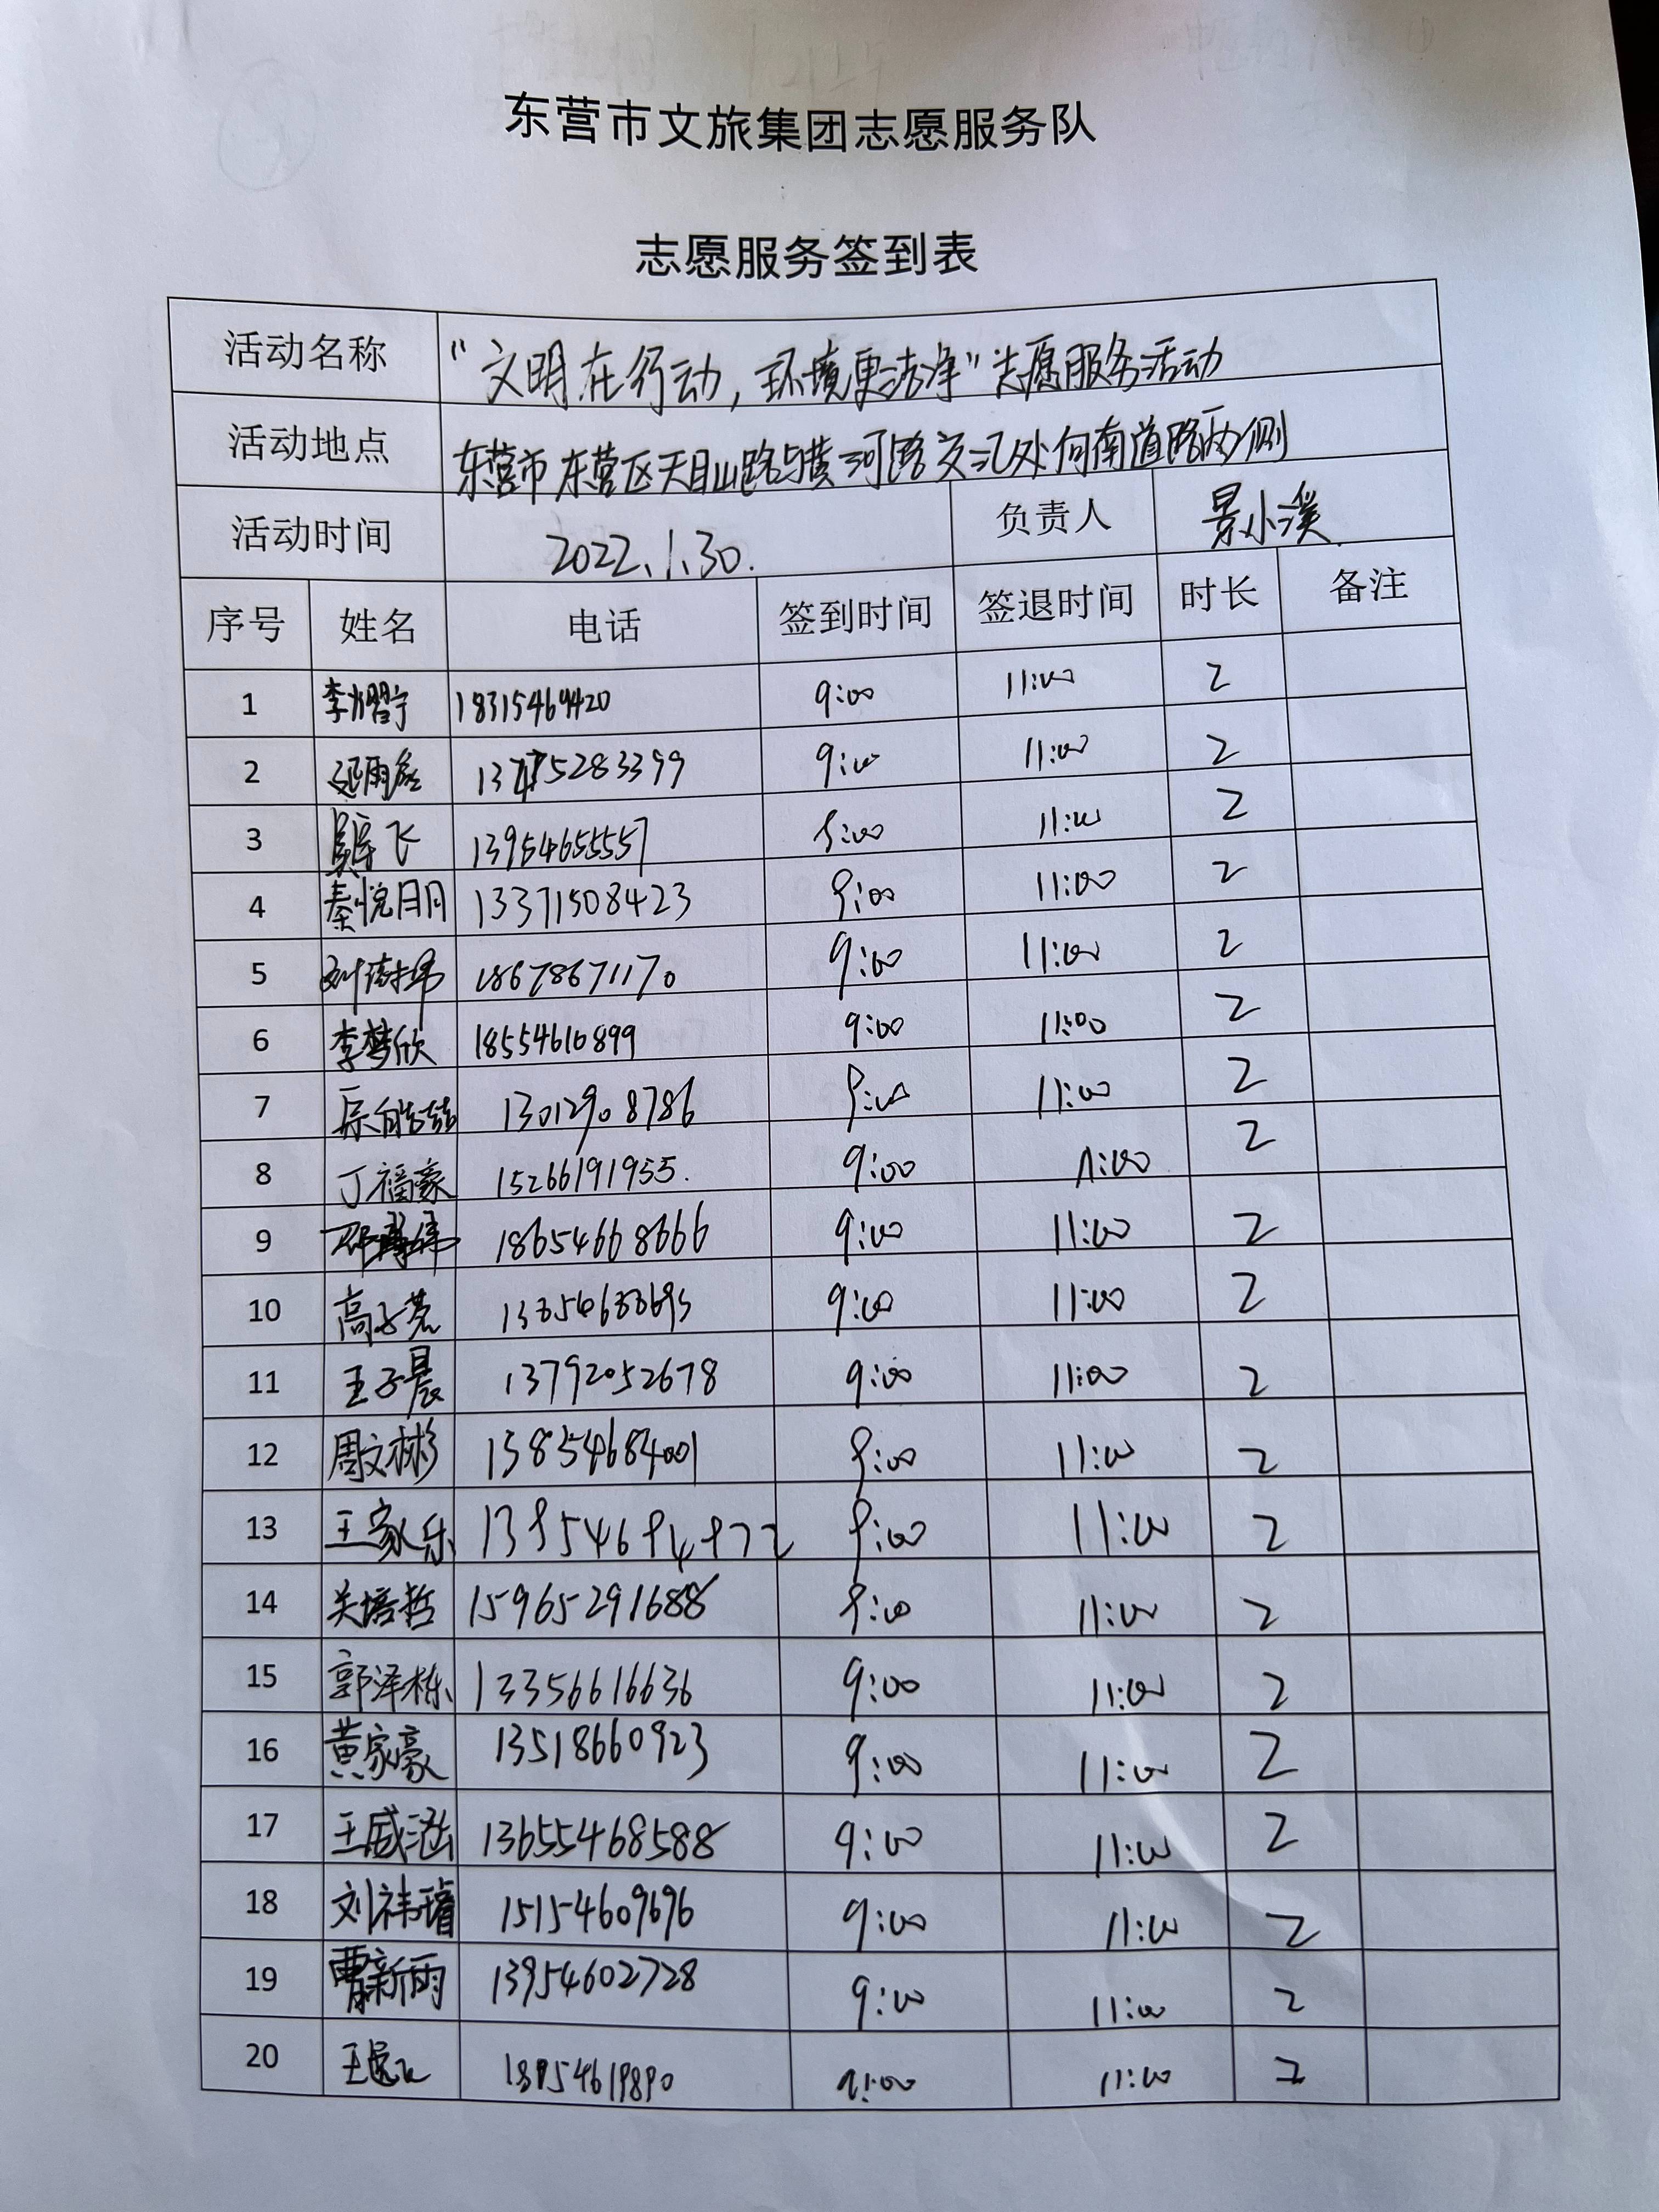 东营市文旅集团志愿服务队
志愿服务签到表
活动名称 “文明在行动,环境更洁净”志愿服务活动
活动地点 东营市东营区天目山路与黄河路交汇处向南道路两侧
活动时间 2022.1.30. 负责人 景小溪
序号 姓名 电话 签到时间 签退时间 时长 备注
1 18315469420 9:00 11:00 2
2 9:00 11:00 2
3 13954655557 9:00 11:00 2
4 秦悦明 13371508423 9:00 11:00 2
5 18678671170 9:00 11:00 2
6 李梦欣 18554610899 9:00 11:00 2
7 13012908786 9:00 11:00 2
8 丁福豪 15266191955. 9:00 11:00 2
9 18654668666 9:00 11:00 2
10 9:00 11:00 2
11 王子晨 13792052678 9:00 11:00 2
12 周文彬 13854684001 9:00 11:00 2
13 王家乐 9:00 11:00 2
14 关培哲 15965291688 9:00 11:00 2
15 郭泽栋 13356616636 9:00 11:00 2
16 黄家豪 13518660923 9:00 11:00 2
17 王威涵 13655468588 9:00 11:00 2
18 15154609696 9:00 11:00 2
19 曹新雨 13954602728 9:00 11:00 2
20 9:00 11:00 2